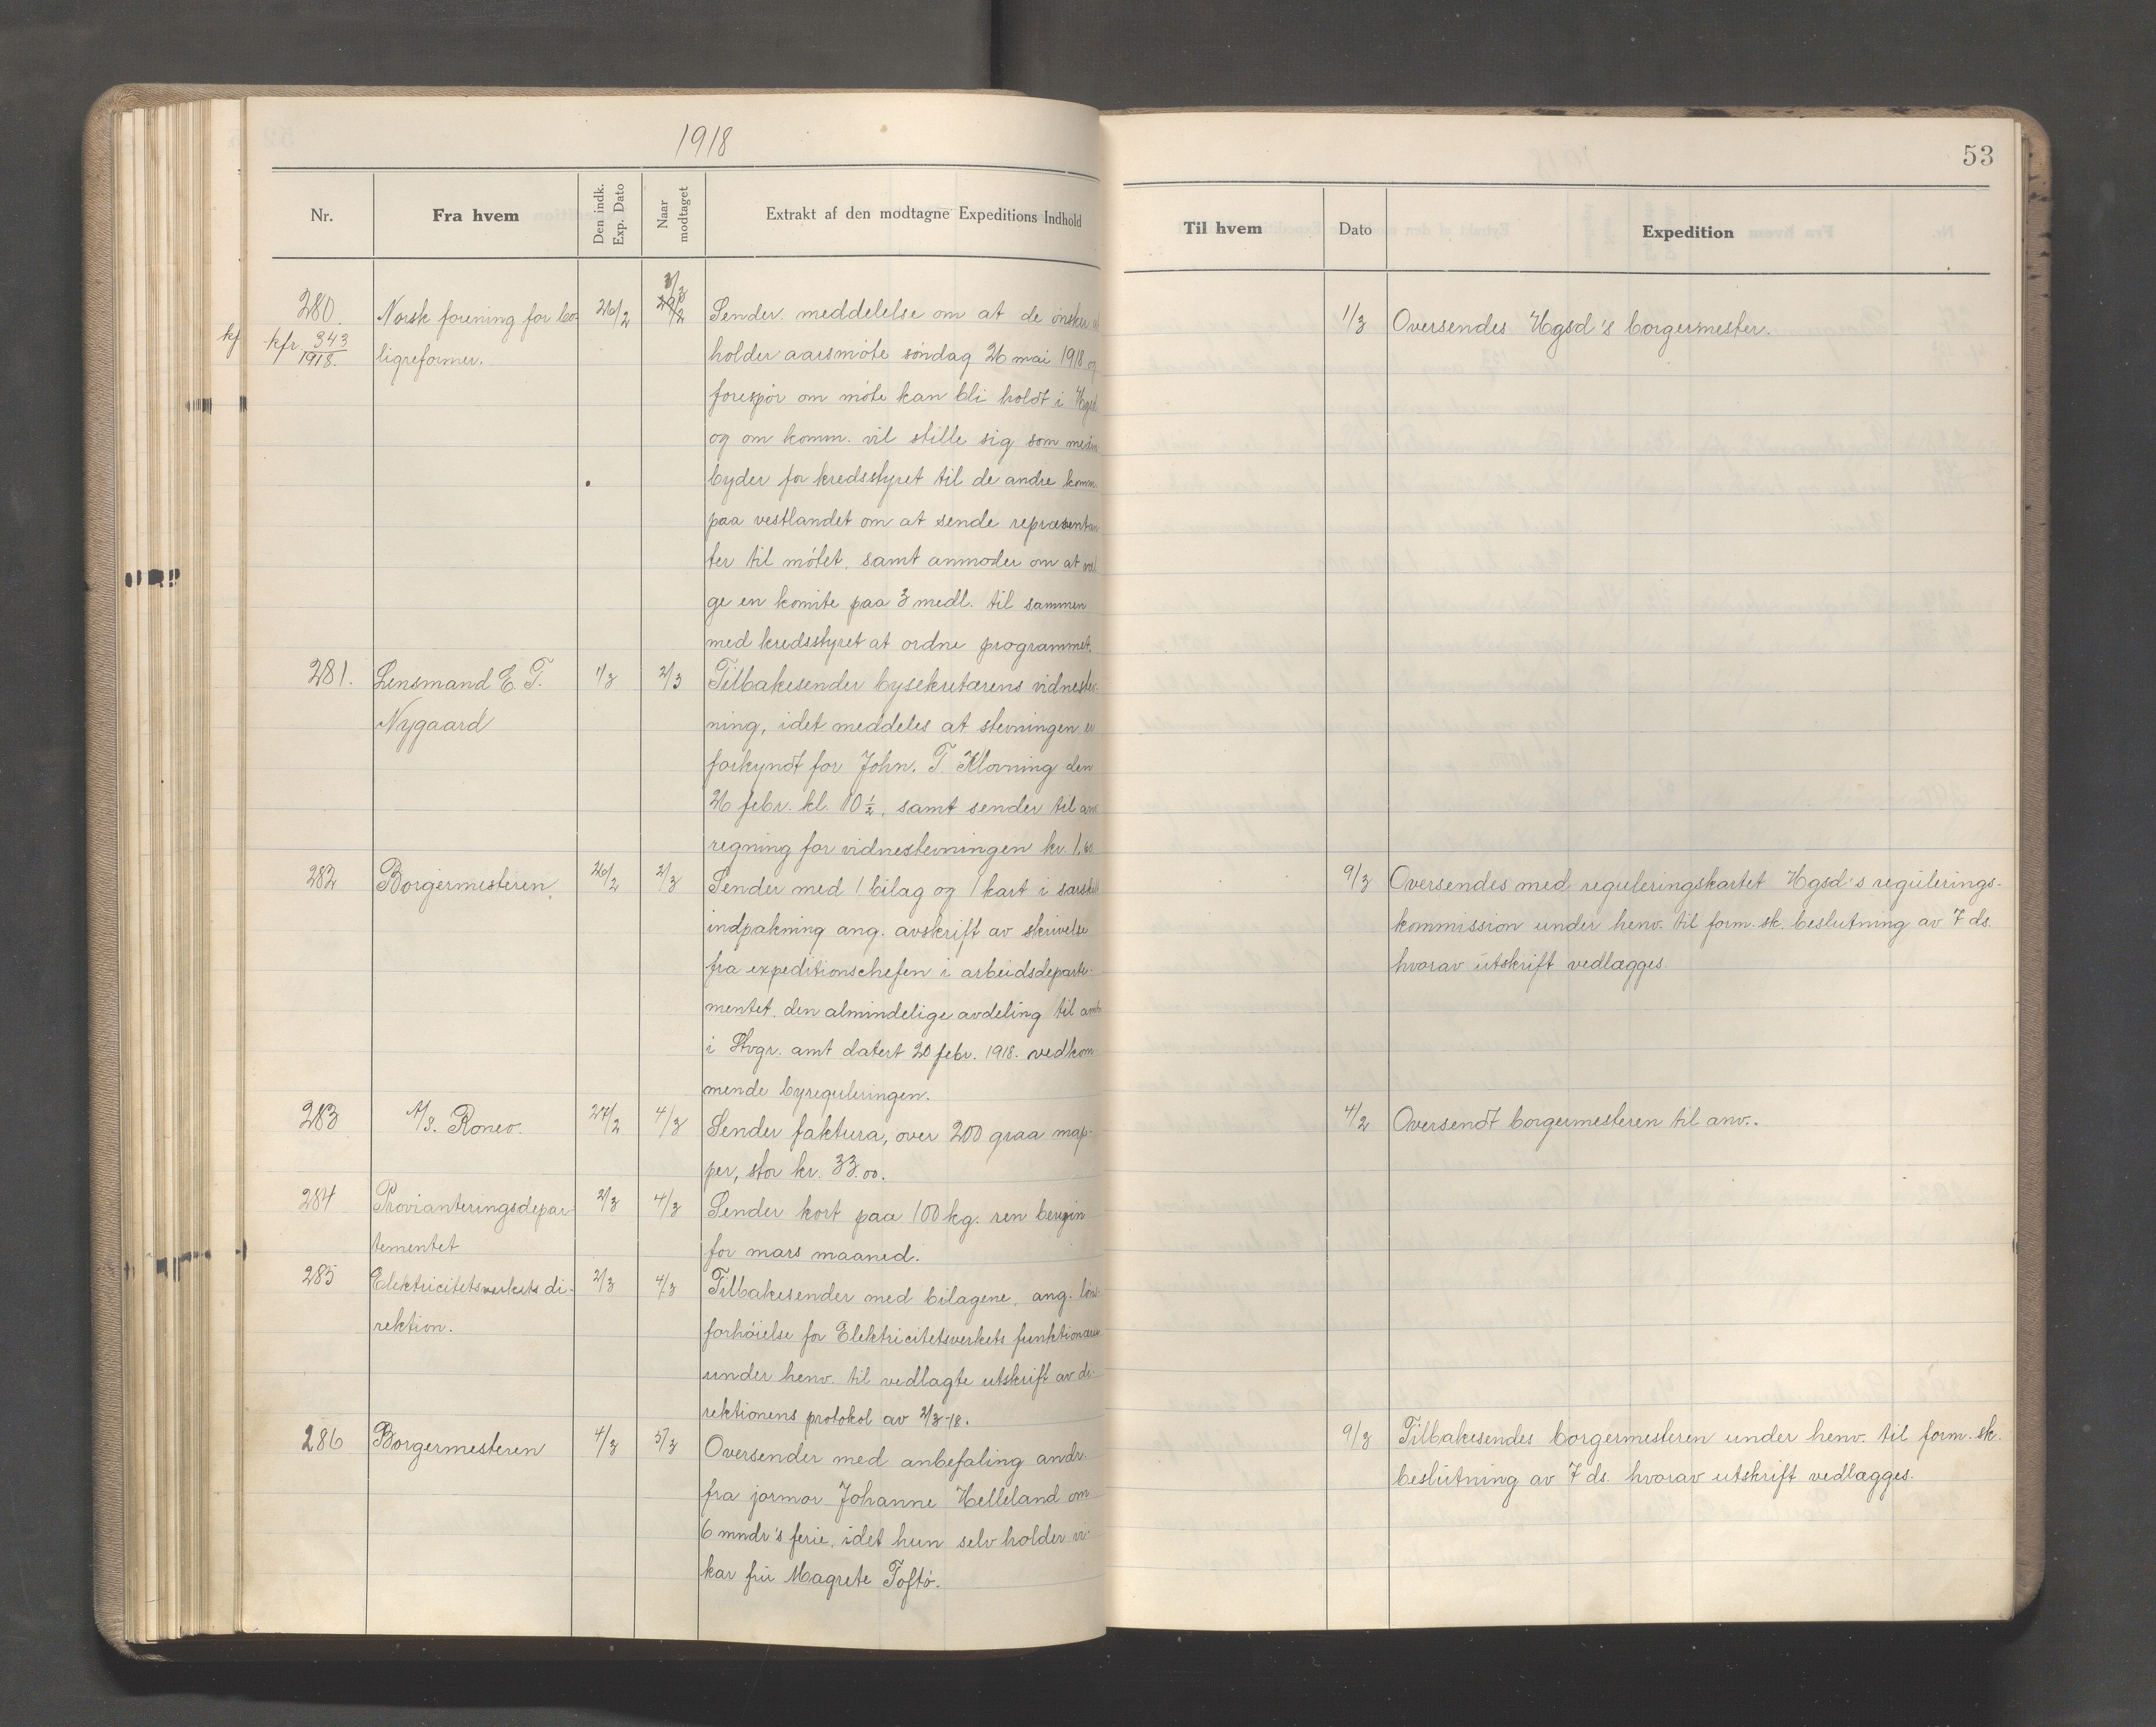 1918
53
Nr.
Fra hvem
Den indk. Exp. Dato
Naar modtaget
Extrakt af den modtagne Expeditions Indhold
Til hvem
Dato
Expedition
280.
kfr. 343
1918.
Norsk forening for bo-
ligreformer.
26/2
Sender meddelelse om at de ønsker
holder aarsmøte søndag 26 mai 1918 og
forespør om møte kan bli holdt i Hgsd.
og om komm. vil stille sig som
byder for kredsstyret til de andre komm.
paa vestlandet om at sende repræsentan
ter til møtet, samt anmoder om at vel
ge en komite paa 3 medl. til sammen
med kredsstyret at ordne programmet.
1/3
Oversendes Hgsd's borgermester.
281.
Lensmand E. T.
Nygaard
1/3
2/3
Tilbakesender bysekretærens vidnestev-
ning, idet meddeles at stevningen er
forkyndt for John. T. Klovning den
26 febr. kl. 10 ½, samt sender til anv
regning for vidnestevningen kr. 1,60
282
Borgermesteren
26/2
2/3
Sender med 1 bilag og 1 kart i særskilt
indpakning ang. avskrift av skrivelse
fra expeditionschefen i arbeidsdeparte-
mentet, den almindelige avdeling til amtm
i Stvgr. amt datert 20 febr. 1918. vedkom-
mende byreguleringen.
9/3
Oversendes med reguleringskartet Hgsd's regulerings-
kommission under henv. til form. sk. beslutning av 7 ds.
hvorav utskrift vedlægges.
283
A/S. Roneo.
27/2
4/3
Sender faktura, over 200 graa map-
per, stor kr. 33.00.
4/2
Oversendt borgermesteren til anv..
284
Provianteringsdepar-
tementet
2/3
4/3
Sender kort paa 100 kg. ren benzin
for mars maaned.
285
Elektricitetsverkets di-
rektion.
2/3
4/3
Tilbakesender med bilagene, ang. løns-
forhøielse for Elektricitetsverkets funktionærer
under henv. til vedlagte utskrift av di-
rektionens protokol av 2/3-18.
286
Borgermesteren
4/3
5/3
Oversender med anbefaling andr.
fra jormor Johanne Helleland om
6 mndr's ferie, idet hun selv holder vi-
kar fru Magrete Toftø.
9/3
Tilbakesendes borgermesteren under henv. til form. sk.
beslutning av 7 ds. hvorav utskrift vedlægges.